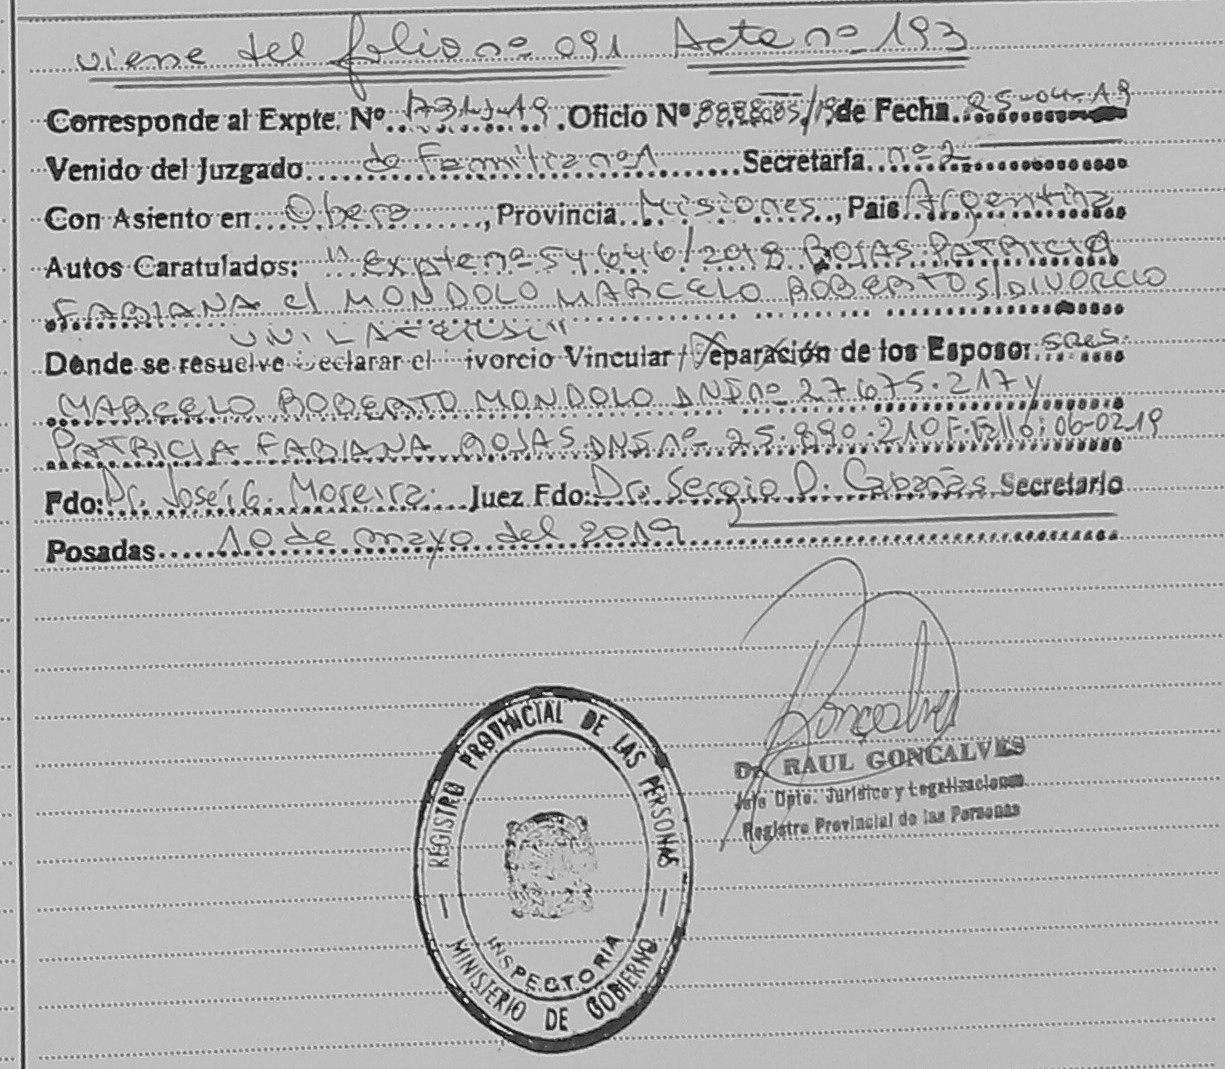 viene del folio nº 091 Acta nº 193
Corresponde al Expte. Nº 1731-J-19 .Oficio Nº /19 de Fecha 25-04-19
Venido del Juzgado de Familia nº 1 Secretaría nº 2
Con Asiento en Obera, Provincia Misiones, País Argentina
Autos Caratulados: "expte nº 54646/2018 ROJAS PATRICIA
FABIANA c/ MONDOLO MARCELO ROBERTO s/DIVORCIO
Donde se resuelve eclarar el ivorcio Vincular / eparación de los Esposor sres.
MARCELO ROBERTO MONDOLO DNI nº 27.675.217 y
PATRICIA FABIANA ROJAS DNI nº 25.890.210 F. Fallo: 06-02-19
Fdo: Dr. José G. Moreira. Juez Fdo: Dr. Sergio D. Cabañas Secretario
Posadas 10 de mayo del 2019
Goncalves
Dr. RAUL GONCALVES
Jefe Dpto. Jurídico y Legalizaciones
Registro Provincial de las Personas
REGISTRO PROVINCIAL DE LAS PERSONAS
INSPECTORIA
MINISTERIO DE GOBIERNO